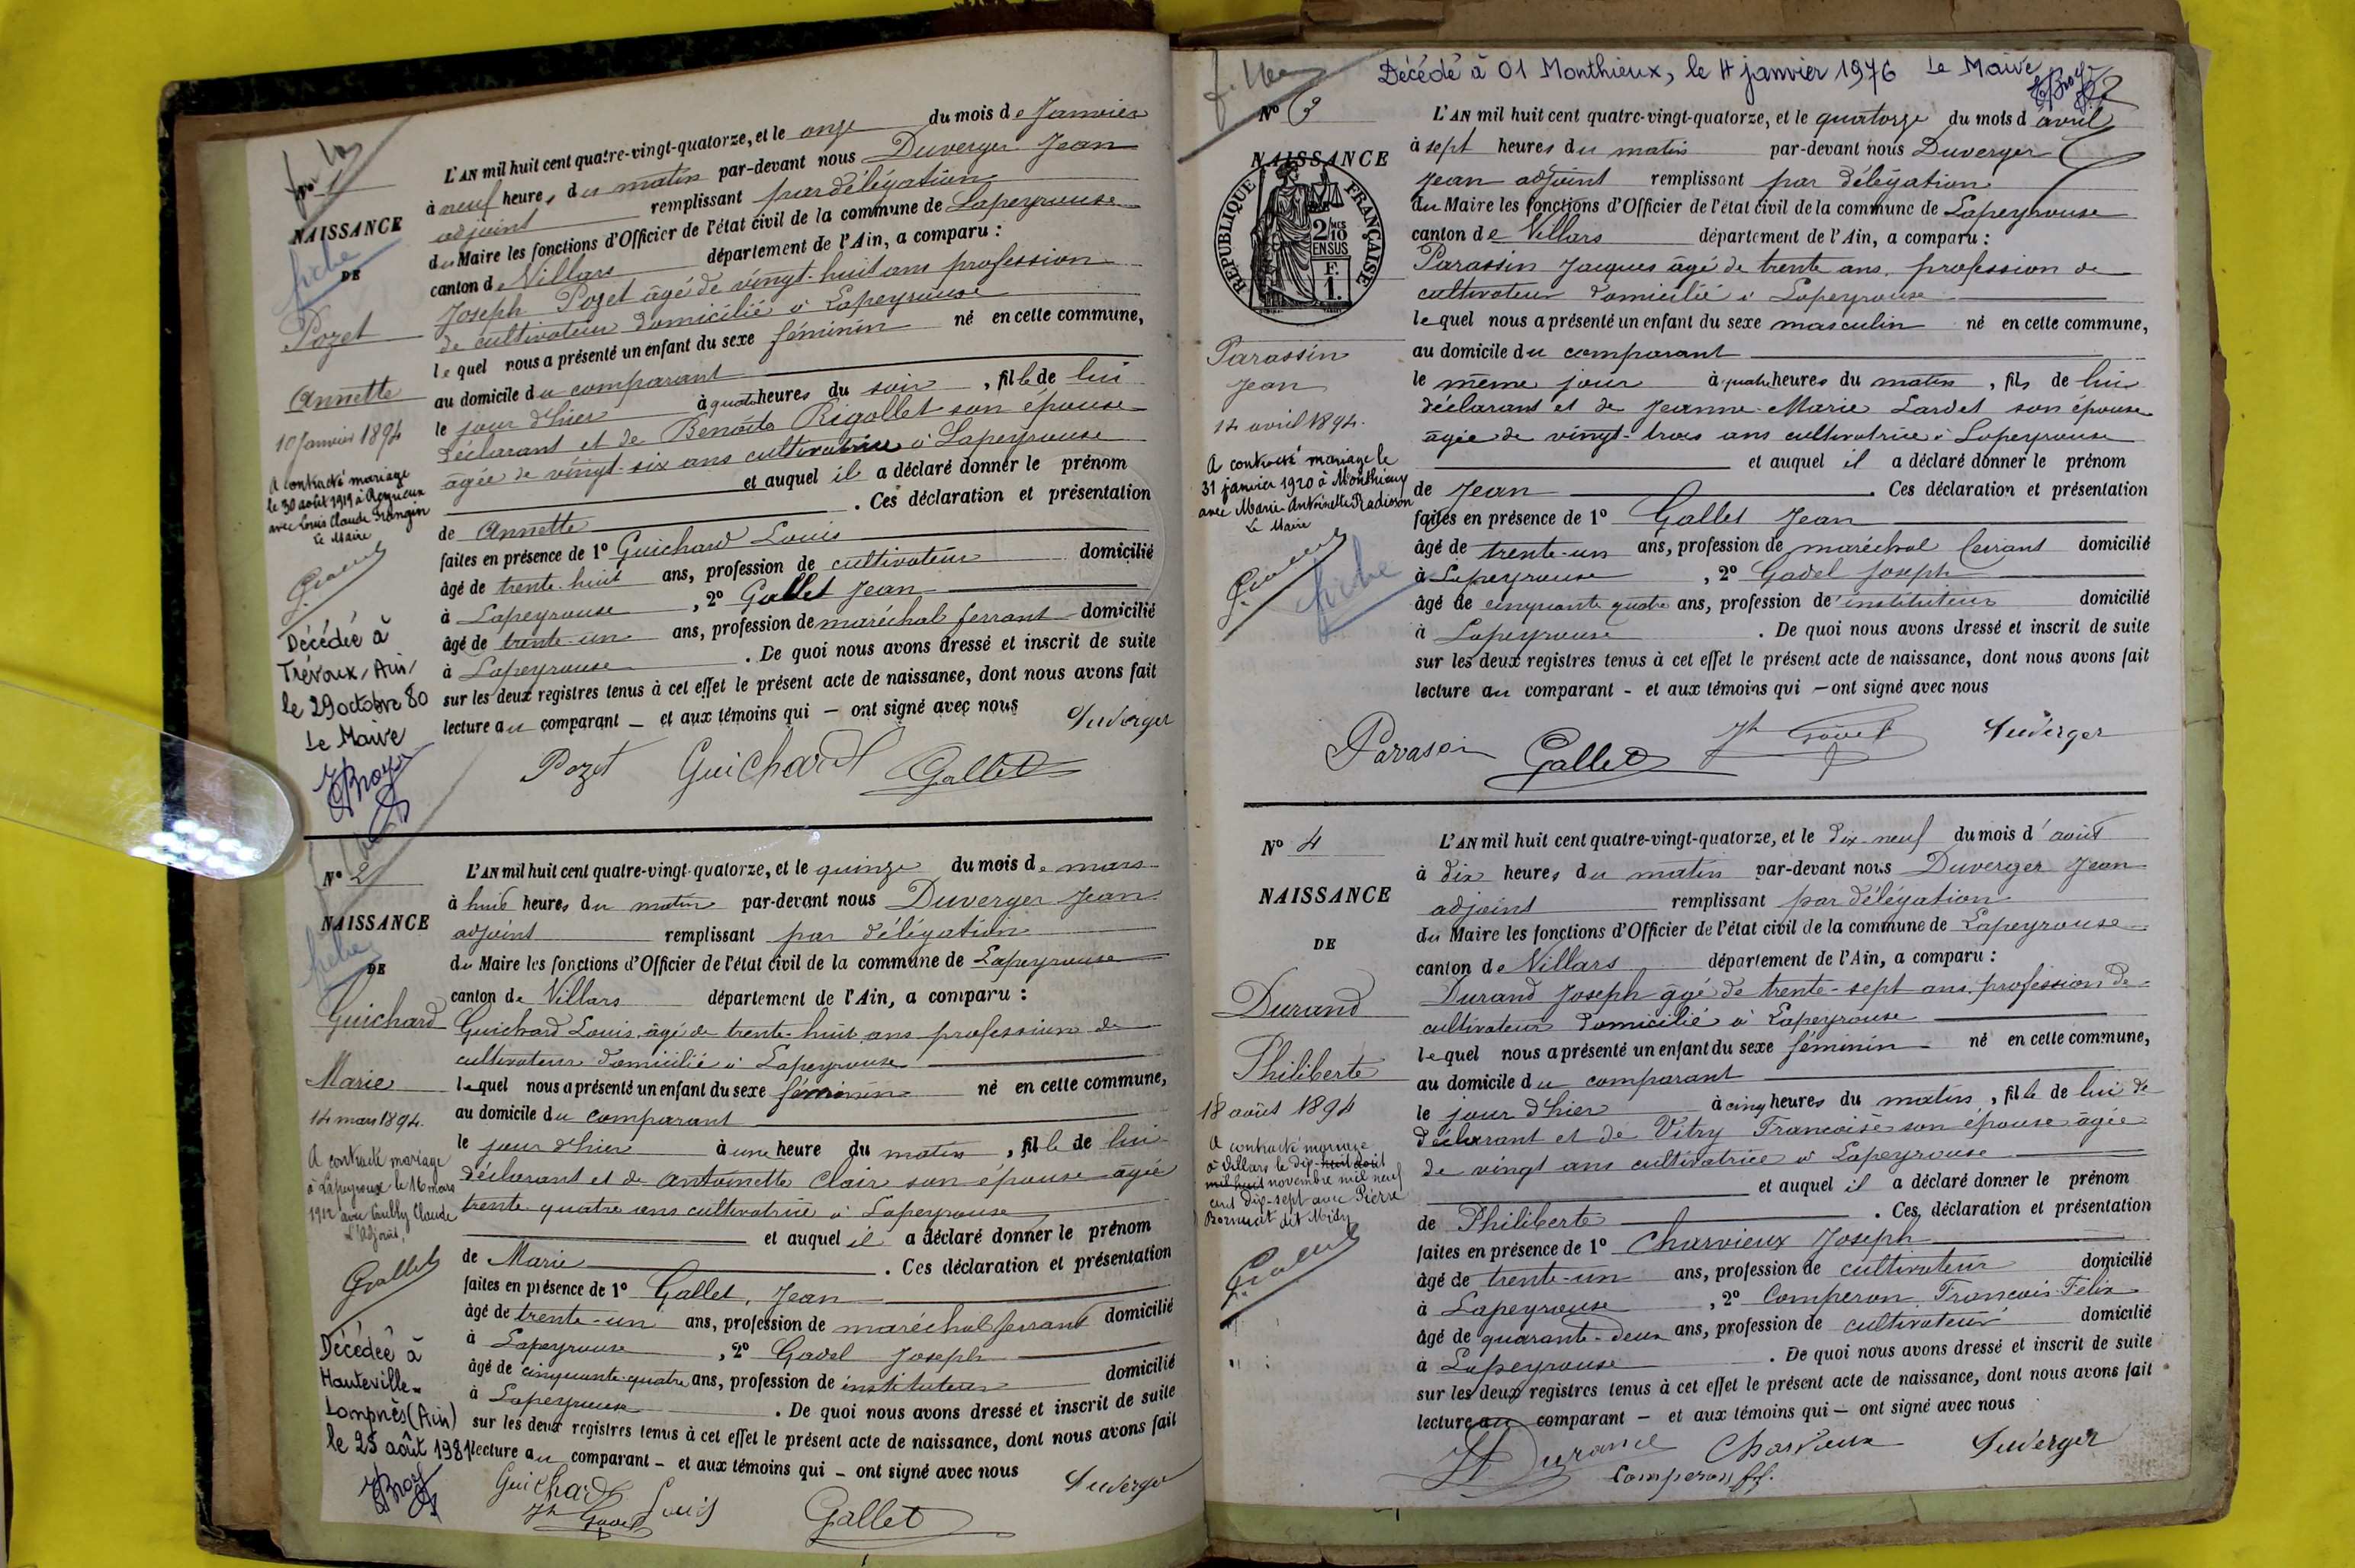 No 1
NAISSANCE
fiche
DE
Pozet
Annette
10 Janvier 1894
A contracté mariage
le 30 août 1919 à Reyrieux
avec Louis Claude Frangin
Le Maire
Décédée à
Trévoux, Ain,
le 29 octobre 80
Le Maire
L'AN mil huit cent quatre-vingt-quatorze, et le onze du mois de Janvier
à neuf heures du matin par-devant nous Duverger Jean
adjoint remplissant par délégation
du Maire les fonctions d'Officier de l'état civil de la commune de Lapeyrouse
canton de Villars département de l'Ain, a comparu :
Joseph Pozet âgé de vingt-huit ans profession
de cultivateur domicilié à Lapeyrouse
lequel nous a présenté un enfant du sexe féminin né en cette commune,
au domicile du comparant
le jour d'hier à quatre heures du soir, fille de lui
déclarant et de Benoite Rigollet son épouse
âgée de vingt-six ans cultivatrice à Lapeyrouse
et auquel il a déclaré donner le prénom
de Annette . Ces déclaration et présentation
faites en présence de 1° Guichard Louis
âgé de trente-huit ans, profession de cultivateur domicilié
à Lapeyrouse , 2° Gallet Jean
âgé de trente-un ans, profession de maréchal ferrant domicilié
à Lapeyrouse . De quoi nous avons dressé et inscrit de suite
sur les deux registres tenus à cet effet le présent acte de naissance, dont nous avons fait
lecture au comparant - et aux témoins qui - ont signé avec nous
Duverger
Pozet Guichard Gallet
No 2
NAISSANCE
fiche
DE
Guichard
Marie
14 mars 1894.
A contracté mariage
à Lapeyrouse le 16 mars
1912 avec Claude
L'Adjoint,
Gallet
Décédée à
Hauteville-
Lompnès (Ain)
le 25 août 1981
L'AN mil huit cent quatre-vingt-quatorze, et le quinze du mois de mars
à huit heures du matin par-devant nous Duverger Jean
adjoint remplissant par délégation
du Maire les fonctions d'Officier de l'état civil de la commune de Lapeyrouse
canton de Villars département de l'Ain, a comparu :
Guichard Louis âgé de trente-huit ans profession de
cultivateur domicilié à Lapeyrouse
lequel nous a présenté un enfant du sexe féminin né en cette commune,
au domicile du comparant
le jour d'hier à une heure du matin, fille de lui
déclarant et de Antoinette Clair son épouse âgée
trente-quatre ans cultivatrice à Lapeyrouse
et auquel il a déclaré donner le prénom
de Marie . Ces déclaration et présentation
faites en présence de 1° Gallet, Jean
âgé de trente-un ans, profession de maréchal ferrant domicilié
à Lapeyrouse , 2° Gavel Joseph
âgé de cinquante-quatre ans, profession de instituteur domicilié
à Lapeyrouse . De quoi nous avons dressé et inscrit de suite
sur les deux registres tenus à cet effet le présent acte de naissance, dont nous avons fait
lecture au comparant - et aux témoins qui - ont signé avec nous
Guichard Louis Duverger
Jh Gavel Gallet
Décédé à 01 Monthieux, le 4 janvier 1976 Le Maire
No 3
NAISSANCE
RÉPUBLIQUE FRANÇAISE
2/10 EN SUS
F. 1.
Parassin
Jean
14 avril 1894.
A contracté mariage le
31 janvier 1920 à Monthieux
avec Marie-Antoinette Radisson
Le Maire
fiche
L'AN mil huit cent quatre-vingt-quatorze, et le quatorze du mois d'avril
à sept heures du matin par-devant nous Duverger
Jean adjoint remplissant par délégation
du Maire les fonctions d'Officier de l'état civil de la commune de Lapeyrouse
canton de Villars département de l'Ain, a comparu :
Parassin Jacques âgé de trente ans, profession de
cultivateur domicilié à Lapeyrouse
lequel nous a présenté un enfant du sexe masculin né en cette commune,
au domicile du comparant
le même jour à quatre heures du matin, fils de lui
déclarant et de Jeanne-Marie Lardet son épouse
âgée de vingt-trois ans cultivatrice à Lapeyrouse
et auquel il a déclaré donner le prénom
de Jean . Ces déclaration et présentation
faites en présence de 1° Gallet Jean
âgé de trente-un ans, profession de maréchal ferrant domicilié
à Lapeyrouse , 2° Gavel Joseph
âgé de cinquante quatre ans, profession d'instituteur domicilié
à Lapeyrouse . De quoi nous avons dressé et inscrit de suite
sur les deux registres tenus à cet effet le présent acte de naissance, dont nous avons fait
lecture au comparant - et aux témoins qui - ont signé avec nous
Parassin Gallet Jh Gavel Duverger
No 4
NAISSANCE
DE
Durand
Philiberte
18 août 1894
A contracté mariage
à Villars le dix-huit août
mil huit novembre mil neuf
cent dix-sept avec Pierre
dit Midy
L'AN mil huit cent quatre-vingt-quatorze, et le dix-neuf du mois d'août
à dix heures du matin par-devant nous Duverger Jean
adjoint remplissant par délégation
du Maire les fonctions d'Officier de l'état civil de la commune de Lapeyrouse
canton de Villars département de l'Ain, a comparu :
Durand Joseph âgé de trente-sept ans profession de
cultivateur domicilié à Lapeyrouse
lequel nous a présenté un enfant du sexe féminin né en cette commune,
au domicile du comparant
le jour d'hier à cinq heures du matin, fille de lui de
déclarant et de Vitry Francoise son épouse âgée
de vingt ans cultivatrice à Lapeyrouse
et auquel il a déclaré donner le prénom
de Philiberte . Ces déclaration et présentation
faites en présence de 1° Charvieux Joseph
âgé de trente-un ans, profession de cultivateur domicilié
à Lapeyrouse , 2° Comperon Francois-Félix
âgé de quarante-deux ans, profession de cultivateur domicilié
à Lapeyrouse . De quoi nous avons dressé et inscrit de suite
sur les deux registres tenus à cet effet le présent acte de naissance, dont nous avons fait
lecture au comparant - et aux témoins qui - ont signé avec nous
Durand Charvieux Duverger
Comperon f.f.